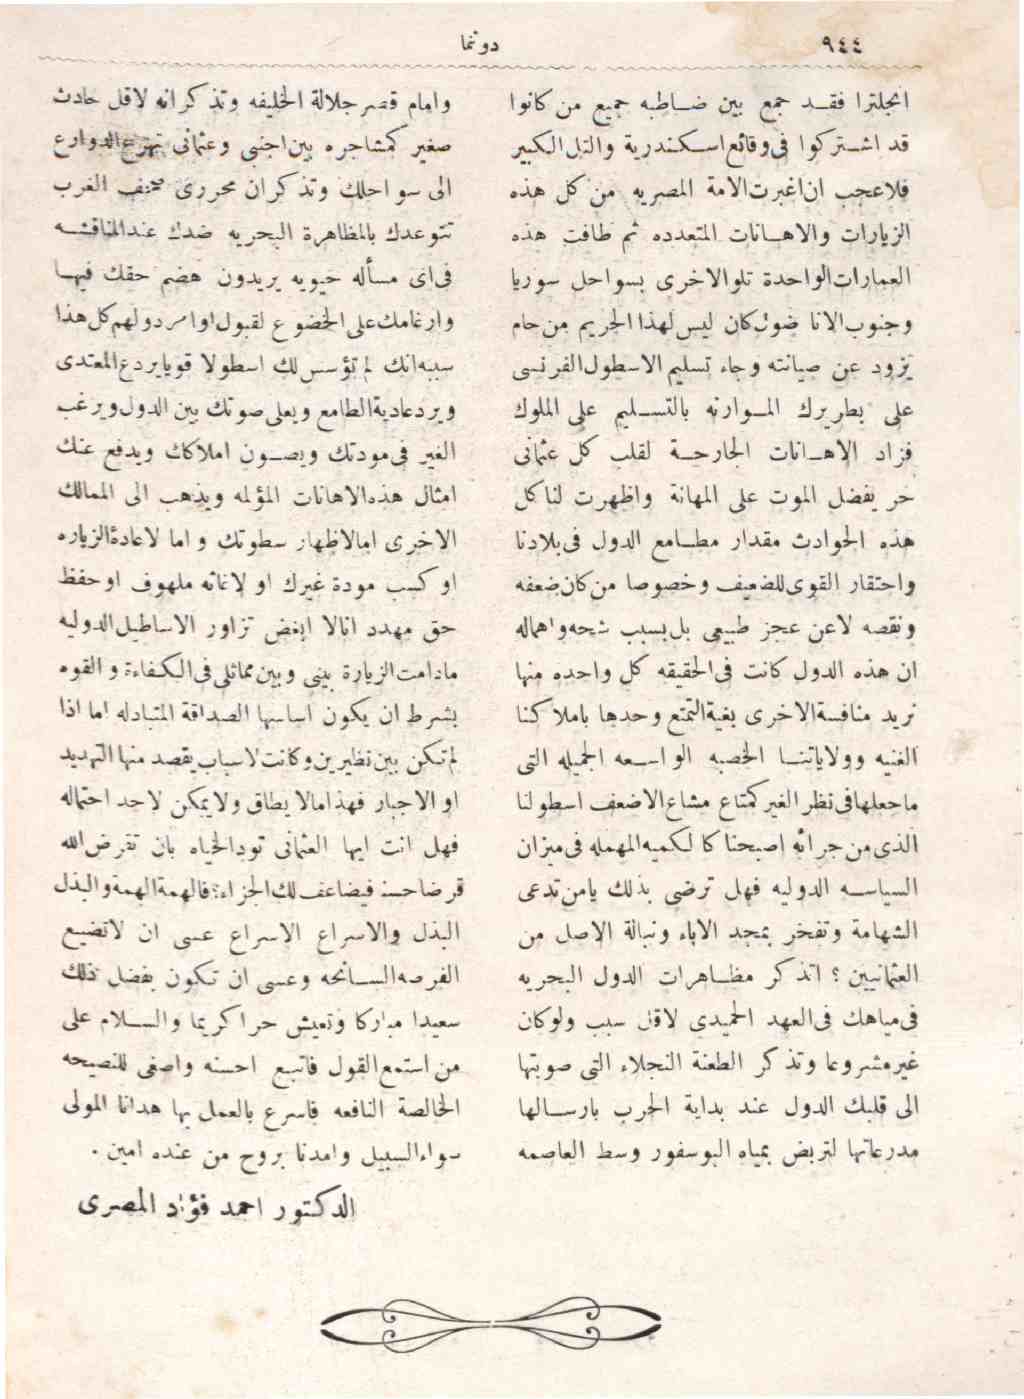 ٩٤٤
دوننما
انجلترا فقــد جمع بين ضــاطبه جميع من كانوا
قد اشــتركوا فى وقائع اسـكـندرية والتل الكبير
فلاعجب ان اغبرت الامة المصريه من كل هذه
الزيارات والاهــانات المتعدده ثم طافت هذه
العمارات الواحدة تلو الاخرى بسواحل سوريا
وجنوب الانا ضول كان ليس لهذا الجريم من حام
يزود عن صيانته وجاء تسليم الاسطول الفرنسى
على بطريرك المــوارنه بالتســليم على الملوك
فزاد الاهــانات الجارحــة لقلب كل عثمانى
حر يفضل الموت على المهانة واظهرت لنا كل
هذه الحوادث مقدار مطــامع الدول فى بلادنا
واحتقار القوى للضعيف وخصوصا من كان ضعفه
ونقصه لاعن عجز طبيعى بل بسبب شحه واهماله
ان هذه الدول كانت فى الحقيقه كل واحده منها
تريد منافسة الاخرى بغية التمتع وحدها باملاكنا
الغنيه وولاياتنــا الخصبه الواســعه الجميله التى
ماجعلها فى نظر الغير كمتاع مشاع الاضعف اسطولنا
الذى من جرائه اصبحنا كا لكميه المهمله فى ميزان
السياســه الدوليه فهل ترضى بذلك يامن تدعى
الشهامة وتفخر بمجد الاباء ونبالة الاصل من
العثمانيين ؟ اتذكر مظــاهرات الدول البحريه
فى مياهك فى العهد الحميدى لاقل سبب ولوكان
غير مشروعا وتذكر الطعنة النجلاء التى صوبتها
الى قلبك الدول عند بداية الحرب بارســالها
مدرعاتها لتربض بمياه البوسفور وسط العاصمه
وامام قصر جلالة الخليفه وتذكر انه لاقل حادث
صغير كمشاجره بين اجنبى وعثمانى تهرع الدوارع
الى سواحلك وتذكر ان محررى صحف الغرب
تتوعدك بالمظاهرة البحريه ضدك عند المناقشــه
فى اى مسأله حيويه يريدون هضم حقك فيهـا
وارغامك على الخضوع لقبول اوامر دولهم كل هذا
سببه انك لم تؤسس لك اسطولا قويا يردع المعتدى
ويرد عادية الطامع ويعلى صوتك بين الدول ويرغب
الغير فى مودتك ويصــون املاكك ويدفع عنك
امثال هذه الاهانات المؤلمه ويذهب الى الممالك
الاخرى اما لاظهار سطوتك واما لاعادة الزياره
او كسب مودة غيرك او لاغاثه ملهوف او حفظ
حق مهدد انا لا ابغض تزاور الاساطيل الدوليه
مادامت الزيارة بينى وبين مماثلى فى الكفاءة والقوه
بشرط ان يكون اساسها الصداقة المتبادله اما اذا
لم تكن بين نظيرين وكانت لاسباب يقصد منها التهديد
او الاجبار فهذا مالا يطاق ولا يمكن لاحد احتماله
فهل انت ايها العثمانى تود الحياه بان تقرض الله
قرضا حسنا فيضاعف لك الجزاء؟ فالهمة الهمة والبذل
البذل والاسراع الاسراع عسى ان لاتضيع
الفرصه الســانحه وعسى ان تكون بفضل ذلك
سعيدا مباركا وتعيش حرا كريما والســلام على
من استمع القول فاتبع احسنه واصغى للنصيحه
الخالصة النافعه فاسرع بالعمل بها هدانا المولى
سواء السبيل وامدنا بروح من عنده امين .
الدكتور احمد فؤاد المصرى